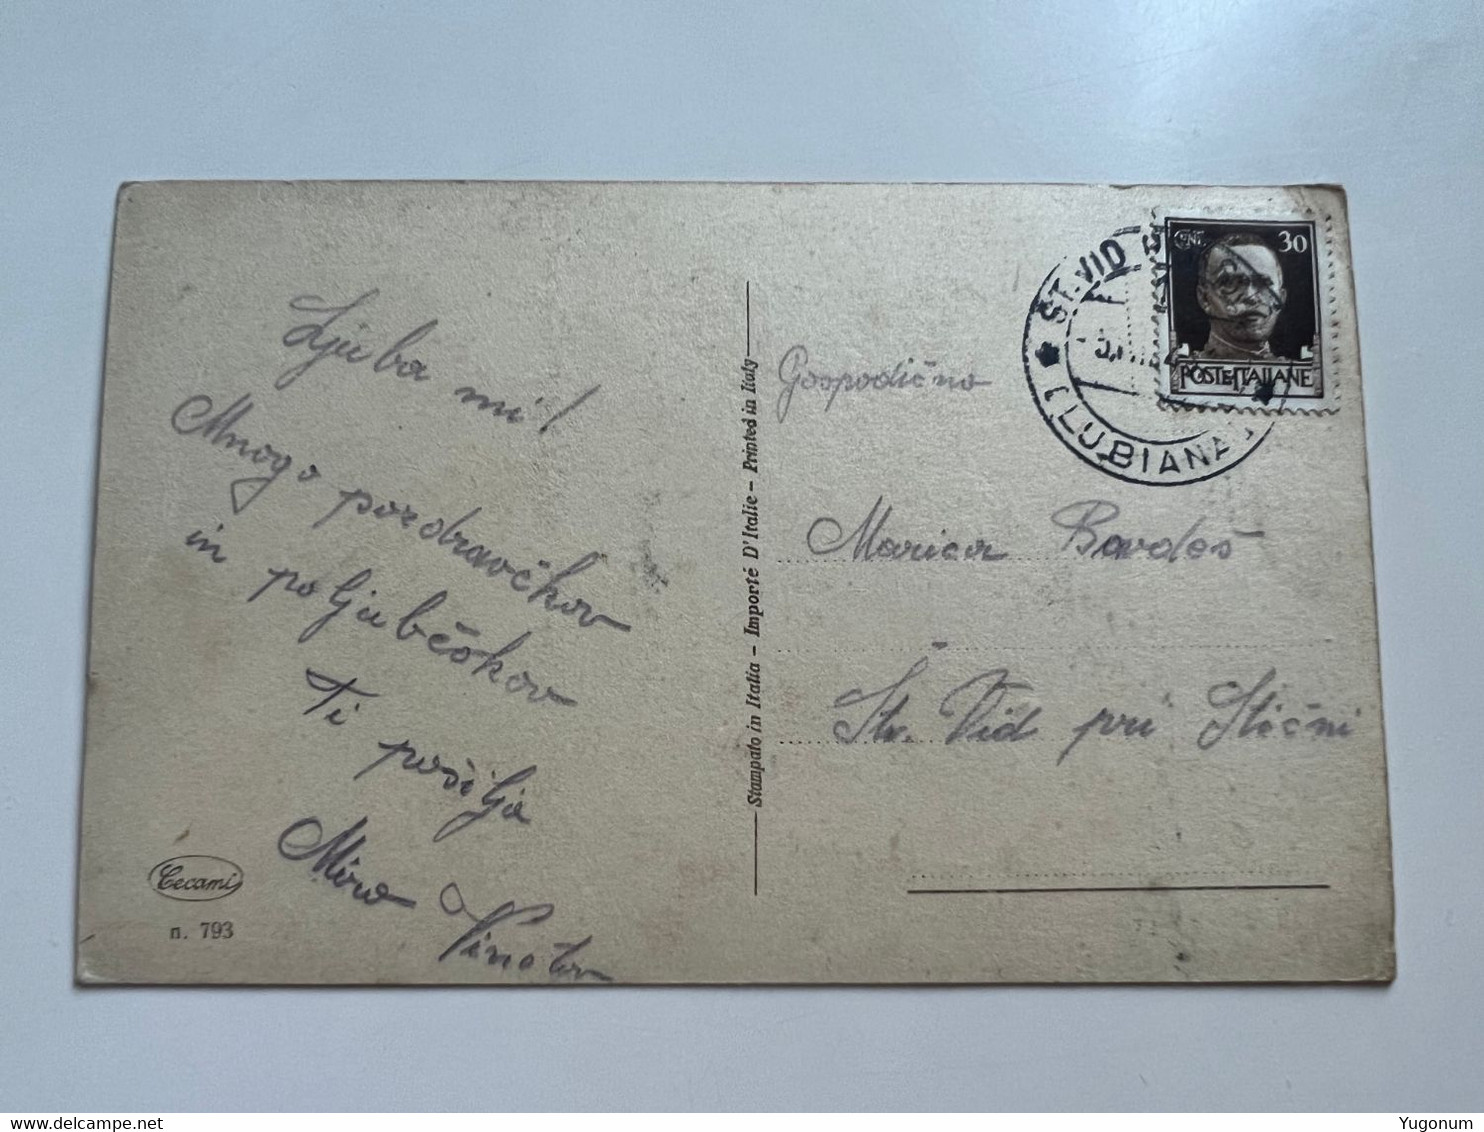 Ljuba mi!
Mnogo pozdravčkov
in poljubčkov
Ti pošilja
Miro
Cecami
n. 793
Stampato in Italia - Importé D'Italie - Printed in Italy
ST. VID
LUBIANA
CENT. 30
POSTE ITALIANE
Gospodična
Marica Bavdoš
Št. Vid pri Stični
delcampe.net
Yugonum